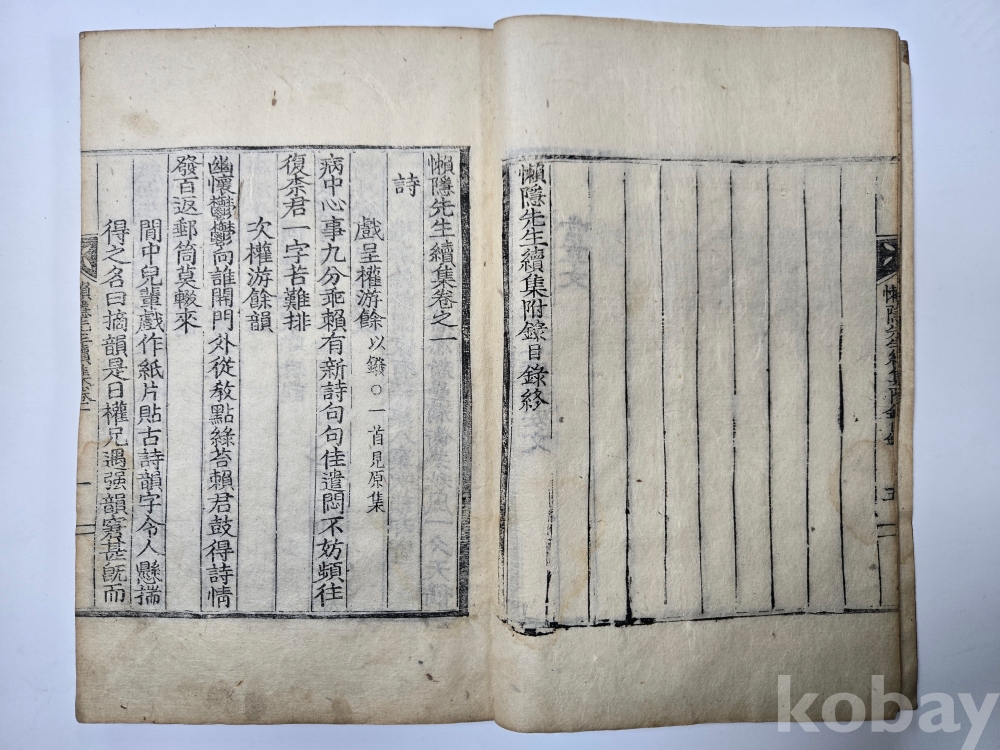 懶隱先生續集附錄目錄終
懶隱先生續集卷之一
詩
戲呈權游餘 以鏺○一首見原集
病中心事九分乖賴有新詩句句佳遣悶不妨頻往
復柰君一字苦難排
次權游餘韻
幽懷鬱鬱向誰開門外從敎點綠苔賴君鼓得詩情
發百返郵筒莫輟來
閒中兒輩戲作紙片貼古詩韻字令人懸揣
得之名曰摘韻是日權兄遇强韻窘甚旣而
懶隱先生續集卷一
一
kobay